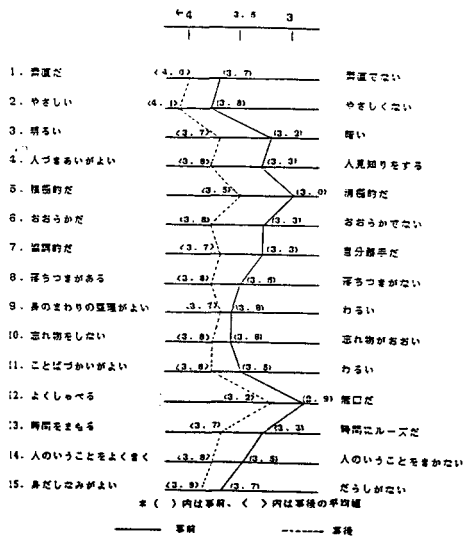 4 3.5 3
1. 素直だ (4.0) (3.7) 素直でない
2. やさしい (4.1) (3.8) やさしくない
3. 明るい (3.7) (3.2) 暗い
4. 人づきあいがよい (3.8) (3.3) 人見知りをする
5. 積極的だ (3.5) (3.0) 消極的だ
6. おおらかだ (3.8) (3.3) おおらかでない
7. 協調的だ (3.7) (3.3) 自分勝手だ
8. 落ちつきがある (3.8) (3.5) 落ちつきがない
9. 身のまわりの整理がよい (3.7) (3.6) わるい
10. 忘れ物をしない (3.8) (3.6) 忘れ物がおおい
11. ことばづかいがよい (3.8) (3.5) わるい
12. よくしゃべる (3.2) (2.9) 無口だ
13. 時間をまもる (3.7) (3.3) 時間にルーズだ
14. 人のいうことをよくきく (3.8) (3.5) 人のいうことをきかない
15. 身だしなみがよい (3.9) (3.7) だらしがない
＊( )内は事前、< >内は事後の平均値
事前 事後